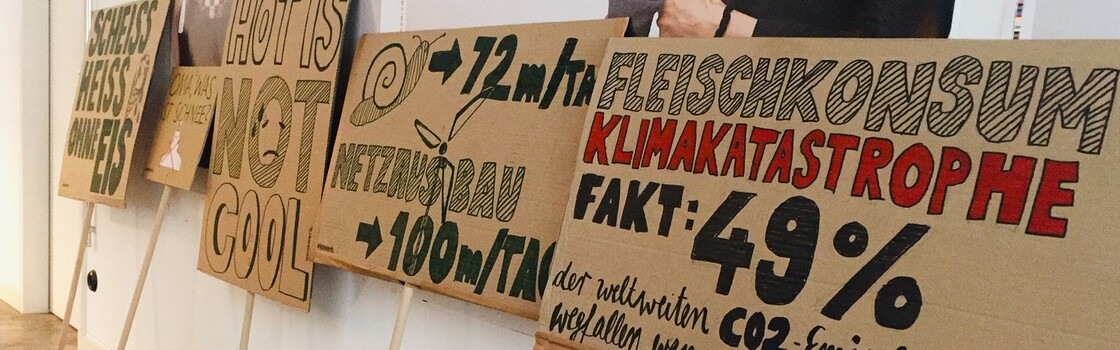 SCHEISS
HEISS
OHNE
EIS
OMA, WAS
IST SCHNEE?
HOT IS
NOT
COOL
→ 72m/TA
NETZAUSBAU
→ 100m/TAG
FLEISCHKONSUM
KLIMAKATASTROPHE
FAKT: 49%
der weltweiten CO2-
wegfallen